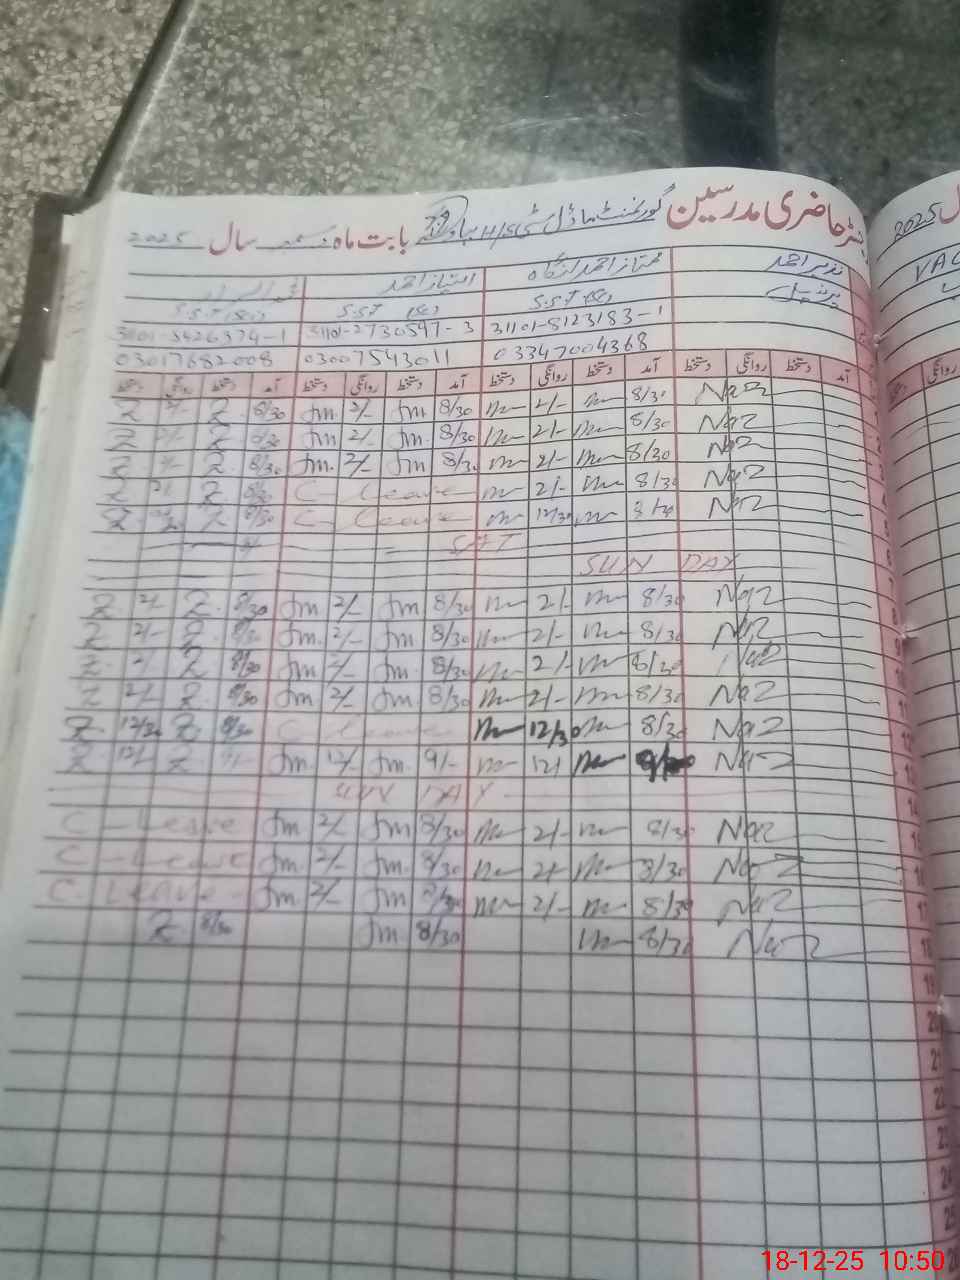 رجسٹر حاضری مدرسین گورنمنٹ ماڈل سٹی H/S بابت ماہ دسمبر سال 2025
2025
VAC
نذیر احمد
ممتاز احمد
امتیاز احمد
پرنسپل
S.S.T
S.S.T
S.S.T
31101-8123183-1
31101-2730597-3
31101-5426374-1
03347004368
03007543011
03017682008
آمد دستخط روانگی دستخط آمد دستخط روانگی دستخط آمد دستخط روانگی دستخط آمد دستخط روانگی دستخط
روانگی
Naz 8/30 m 2/- m 8/30 Jm 2/- Jm 8/30 Z 2/- Z
Naz 8/30 m 2/- m 8/30 Jm 2/- Jm 8/30 Z 2/- Z
Naz 8/30 m 2/- m 8/30 Jm 2/- Jm 8/30 Z 2/- Z
Naz 8/30 m 2/- m C-Leave 8/30 Z 2/- Z
Naz 8/30 m 12/30 m C-Leave 8/30 Z Z
SAT
SUN DAY
Naz 8/30 m 2/- m 8/30 Jm 2/- Jm 8/30 Z 2/- Z
Naz 8/30 m 2/- m 8/30 Jm 2/- Jm 8/30 Z 2/- Z
Naz 8/30 m 2/- m 8/30 Jm 2/- Jm 8/30 Z 2/- Z
Naz 8/30 m 2/- m 8/30 Jm 2/- Jm 8/30 Z 2/- Z
Naz 8/30 m 12/30 m C-Leave 8/30 Z 12/30 Z
Naz m 12/ m 9/- Jm 12/- Jm Z 12/- Z
SUN DAY
Naz 8/30 m 2/- m 8/30 Jm 2/- Jm C-Leave
Naz 8/30 m 2/- m 8/30 Jm 2/- Jm C-Leave
Naz 8/30 m 2/- m 8/30 Jm 2/- Jm C-Leave
Naz 8/30 m 8/30 Jm 8/30 Z
14
15
16
17
18
19
20
21
22
23
24
25
18-12-25 10:50